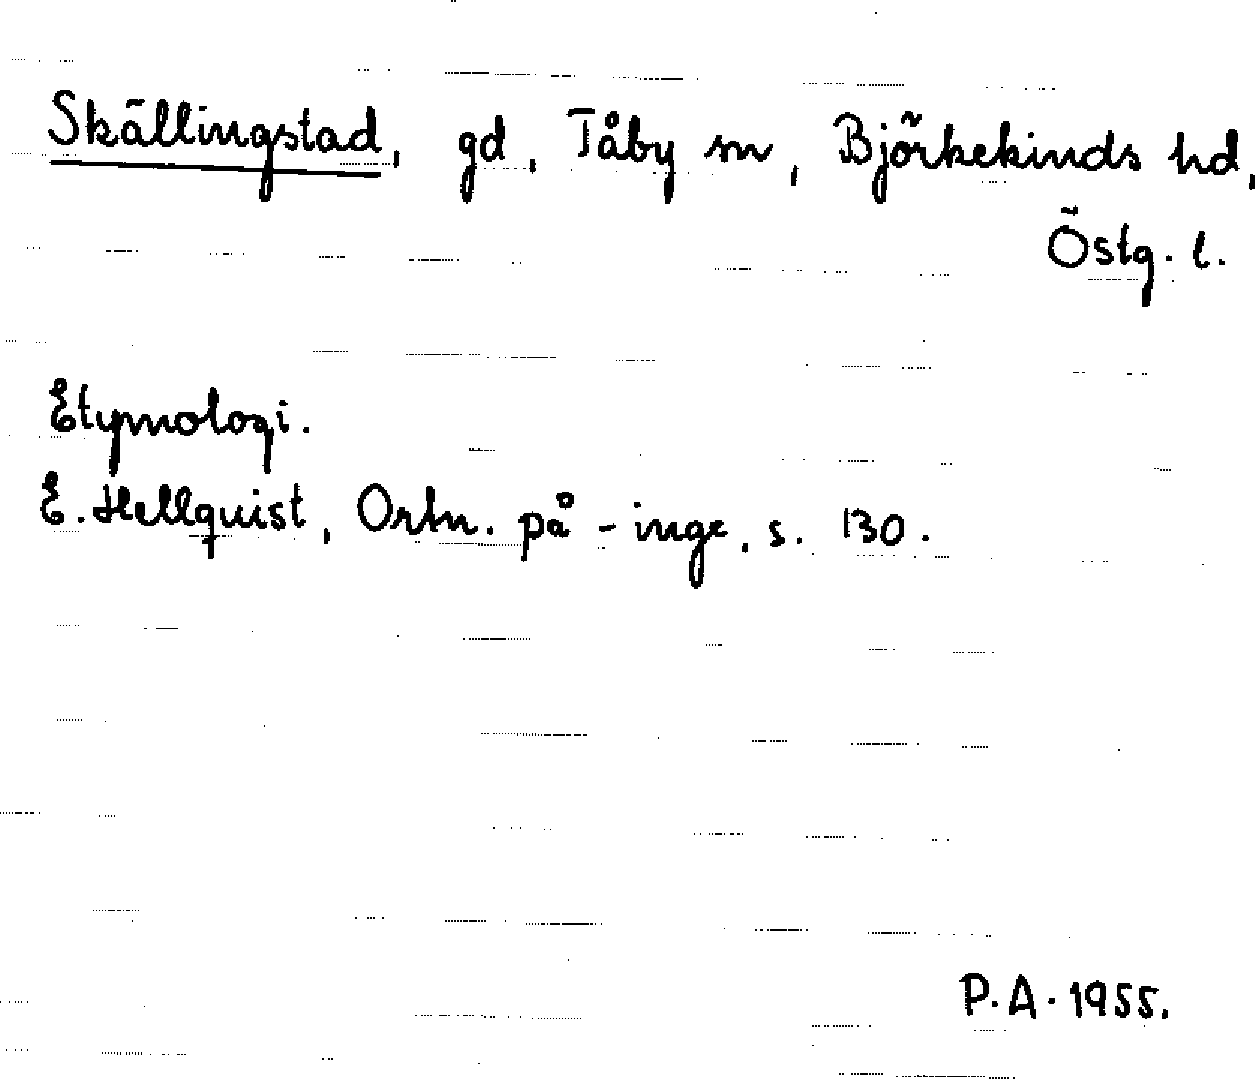 Skällingstad, gd, Tåby sn, Björkekinds hd,
Östg. l.
Etymologi.
E. Hellquist, Ortn. på -inge, s. 130.
P.A. 1955.